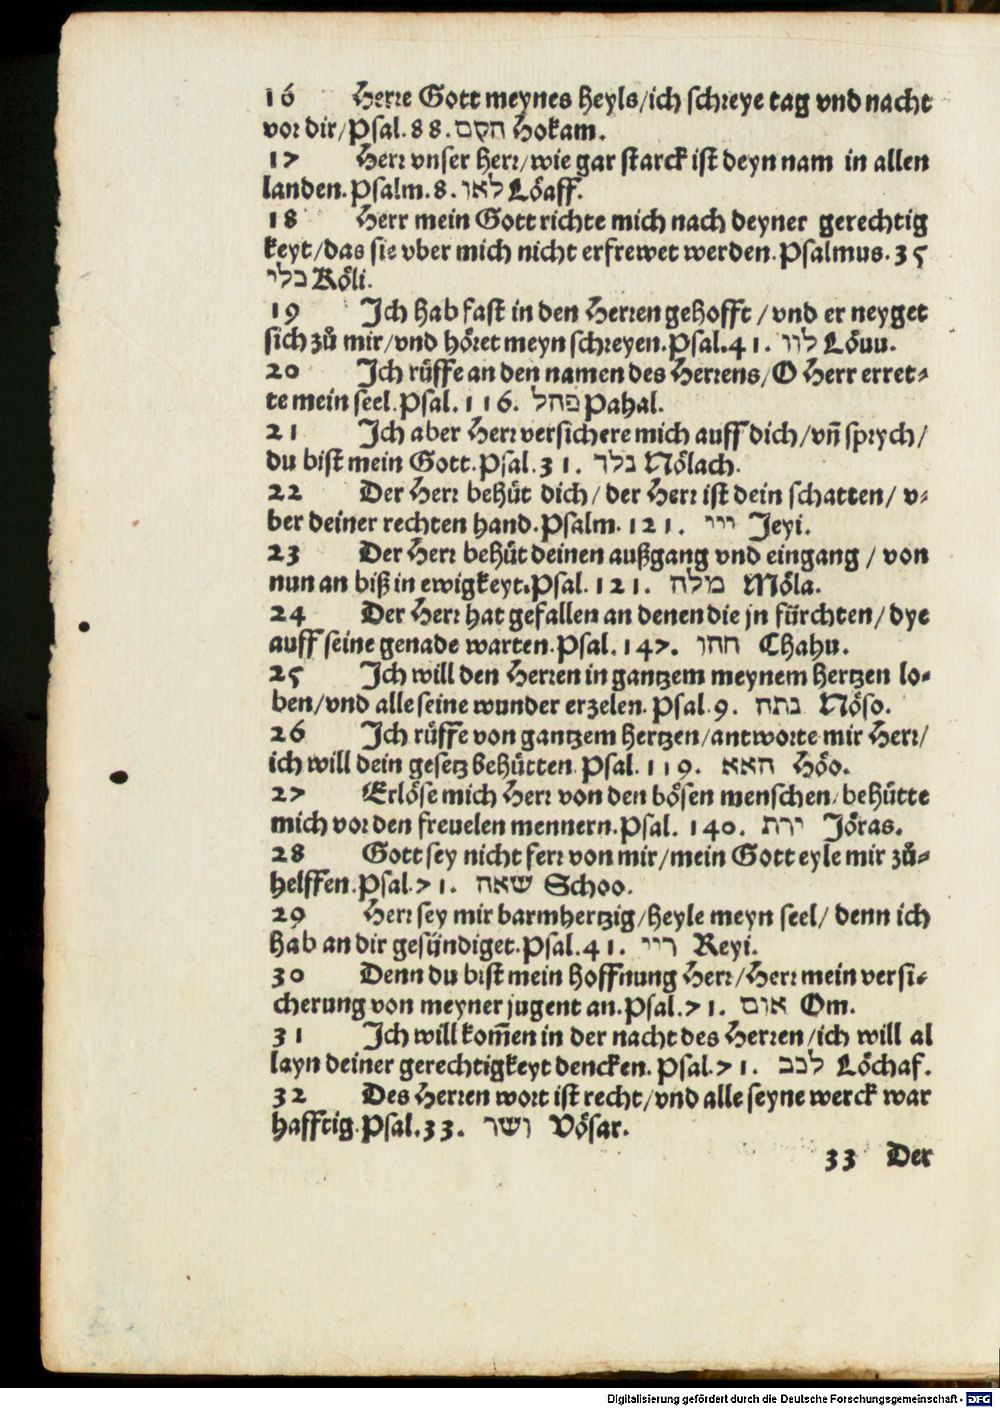 16 Herre Gott meynes heyls/ich schreye tag vnd nacht
vor dir/Psal.88. הקם Hokam.
17 Herr vnser Herr/wie gar starck ist deyn nam in allen
landen.Psalm.8. לאו Löaff.
18 Herr mein Gott richte mich nach deyner gerechtig
keyt/das sie vber mich nicht erfrewet werden.Psalmus.35
כלי Köli.
19 Ich hab fast in den Herren gehofft/vnd er neyget
sich zů mir/vnd höret meyn schreyen.Psal.41. לוו Löuu.
20 Ich rüffe an den namen des Herrens/O Herr erret⸗
te mein seel.Psal.116. פהל Pahal.
21 Ich aber Herr versichere mich auff dich/vñ sprych/
du bist mein Gott.Psal.31. נלך Nölach.
22 Der Herr behüt dich/der Herr ist dein schatten/v⸗
ber deiner rechten hand.Psalm.121. ייי Jeyi.
23 Der Herr behüt deinen außgang vnd eingang/von
nun an biß in ewigkeyt.Psal.121. מלה Möla.
24 Der Herr hat gefallen an denen die jn fürchten/dye
auff seine genade warten.Psal.147. חהו Chahu.
25 Ich will den Herren in gantzem meynem hertzen lo⸗
ben/vnd alle seine wunder erzelen.Psal.9. נתה Nöso.
26 Ich rüffe von gantzem hertzen/antworte mir Herr/
ich will dein gesetz behütten.Psal.119. האא Höo.
27 Erlöse mich Herr von den bösen menschen/behütte
mich vor den freuelen mennern.Psal.140. ירת Jöras.
28 Gott sey nicht ferr von mir/mein Gott eyle mir zů⸗
helffen.Psal.71. שאה Schoo.
29 Herr sey mir barmhertzig/heyle meyn seel/denn ich
hab an dir gesündiget.Psal.41. ריי Reyi.
30 Denn du bist mein hoffnung Herr/Herr mein versi⸗
cherung von meyner jugent an.Psal.71. אום Om.
31 Ich will kom̃en in der nacht des Herren/ich will al
layn deiner gerechtigkeyt dencken.Psal.71. לכב Löchaf.
32 Des Herren wort ist recht/vnd alle seyne werck war
hafftig.Psal.33. ושר Vösar.
33 Der
Digitalisierung gefördert durch die Deutsche Forschungsgemeinschaft - DFG